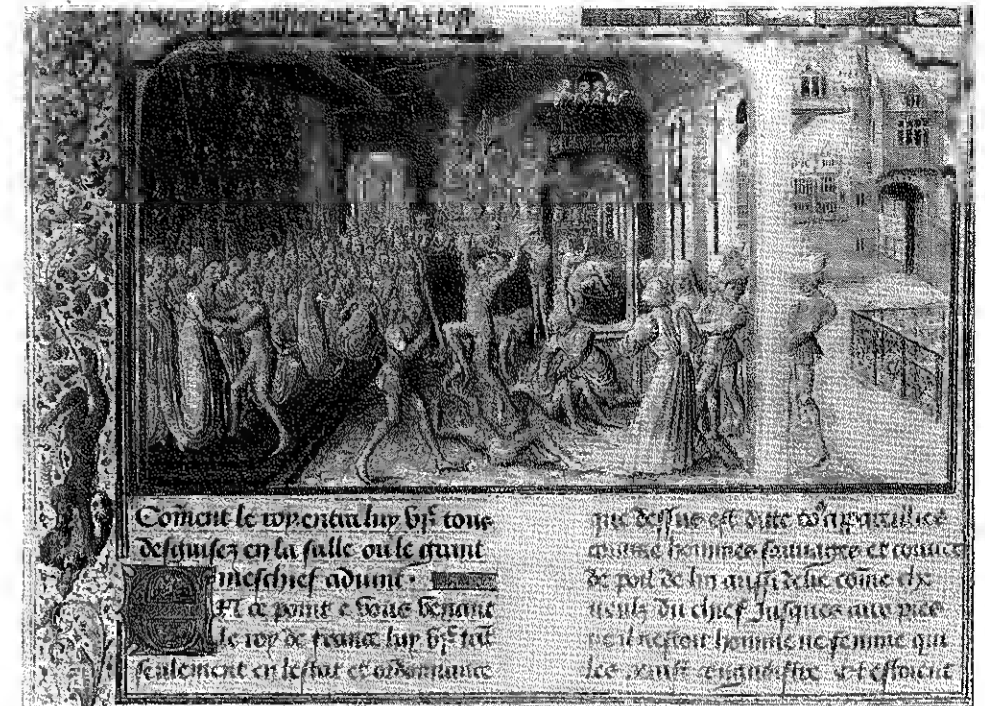 Coment le roy entra luy vjᵉ tous
desguisez en la salle ou le grant
meschief aduint ·
En ce point e vous venant
le roy de france luy vjᵉ tāt
seulement en lestat et ordonnance
que dessus est dite
comme hommes sauuages et couuers
de poil de lin aussi delie come che
ueulz du chief Jusques aux piez
ne il nestoit homme ne femme qui
les et estoient